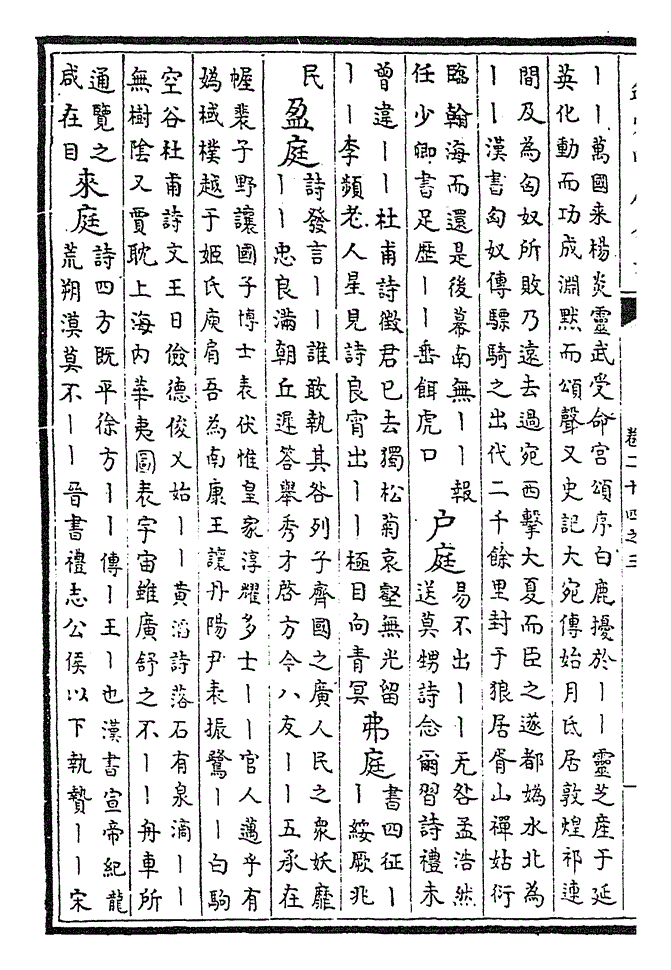 卷二十四之三
丨丨萬國来楊炎靈武受命宮頌序白鹿擾於丨丨靈芝産于延
英化動而功成淵黙而頌聲又史記大宛傳始月氏居敦煌祁連
間及為匈奴所敗乃遠去過宛西擊大夏而臣之遂都媯水北為
丨丨漢書匈奴傳驃騎之出代二千餘里封于狼居胥山禪姑衍
臨翰海而還是後幕南無丨丨報
任少卿書足歴丨丨垂餌虎口
户庭
易不出丨丨无咎孟浩然
送莫甥詩念爾習詩禮未
曾違丨丨杜甫詩徵君已去獨松菊哀壑無光留
丨丨李頻老人星見詩良宵出丨丨極目向青冥
弗庭
書四征丨
丨綏厥兆
民
盈庭
詩發言丨丨誰敢執其咎列子齊國之廣人民之衆妖靡
丨丨忠良滿朝丘遲答舉秀才啓方今八友丨丨五承在
幄裴子野讓國子博士表伏惟皇家淳耀多士丨丨官人邁乎有
媯棫樸越于姬氏庾肩吾為南康王讓丹陽尹表振鷺丨丨白駒
空谷杜甫詩文王日儉德俊乂始丨丨黄滔詩落石有泉滴丨丨
無樹陰又賈耽上海内華夷圖表宇宙雖廣舒之不丨丨舟車所
通覽之
咸在目
來庭
詩四方既平徐方丨丨傳丨王丨也漢書宣帝紀龍
荒朔漠莫不丨丨晉書禮志公侯以下執贄丨丨宋